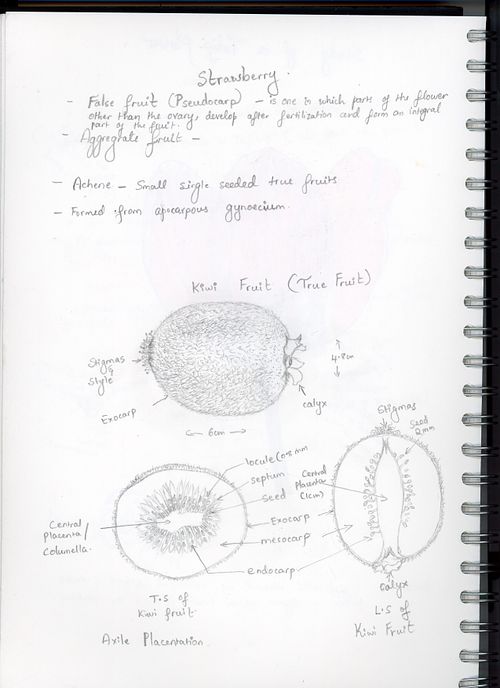 Strawberry.
- False fruit (Pseudocarp) - is one in which parts of the flower
other than the ovary, develop after fertilization and form an integral
part of the fruit.
- Aggregate fruit -
- Achene - Small single seeded true fruits
- Formed from apocarpous gynoecium.
Kiwi Fruit (True Fruit)
Stigmas
&
Style
Exocarp
4.8cm
calyx
6cm
Stigmas
Seed
2mm
locule (0.8mm
septum
seed
Central
Placenta
(1cm)
Central
Placenta/
Columella.
Exocarp
mesocarp
endocarp
calyx
T.S of
Kiwi fruit.
Axile Placentation.
L.S of
Kiwi Fruit